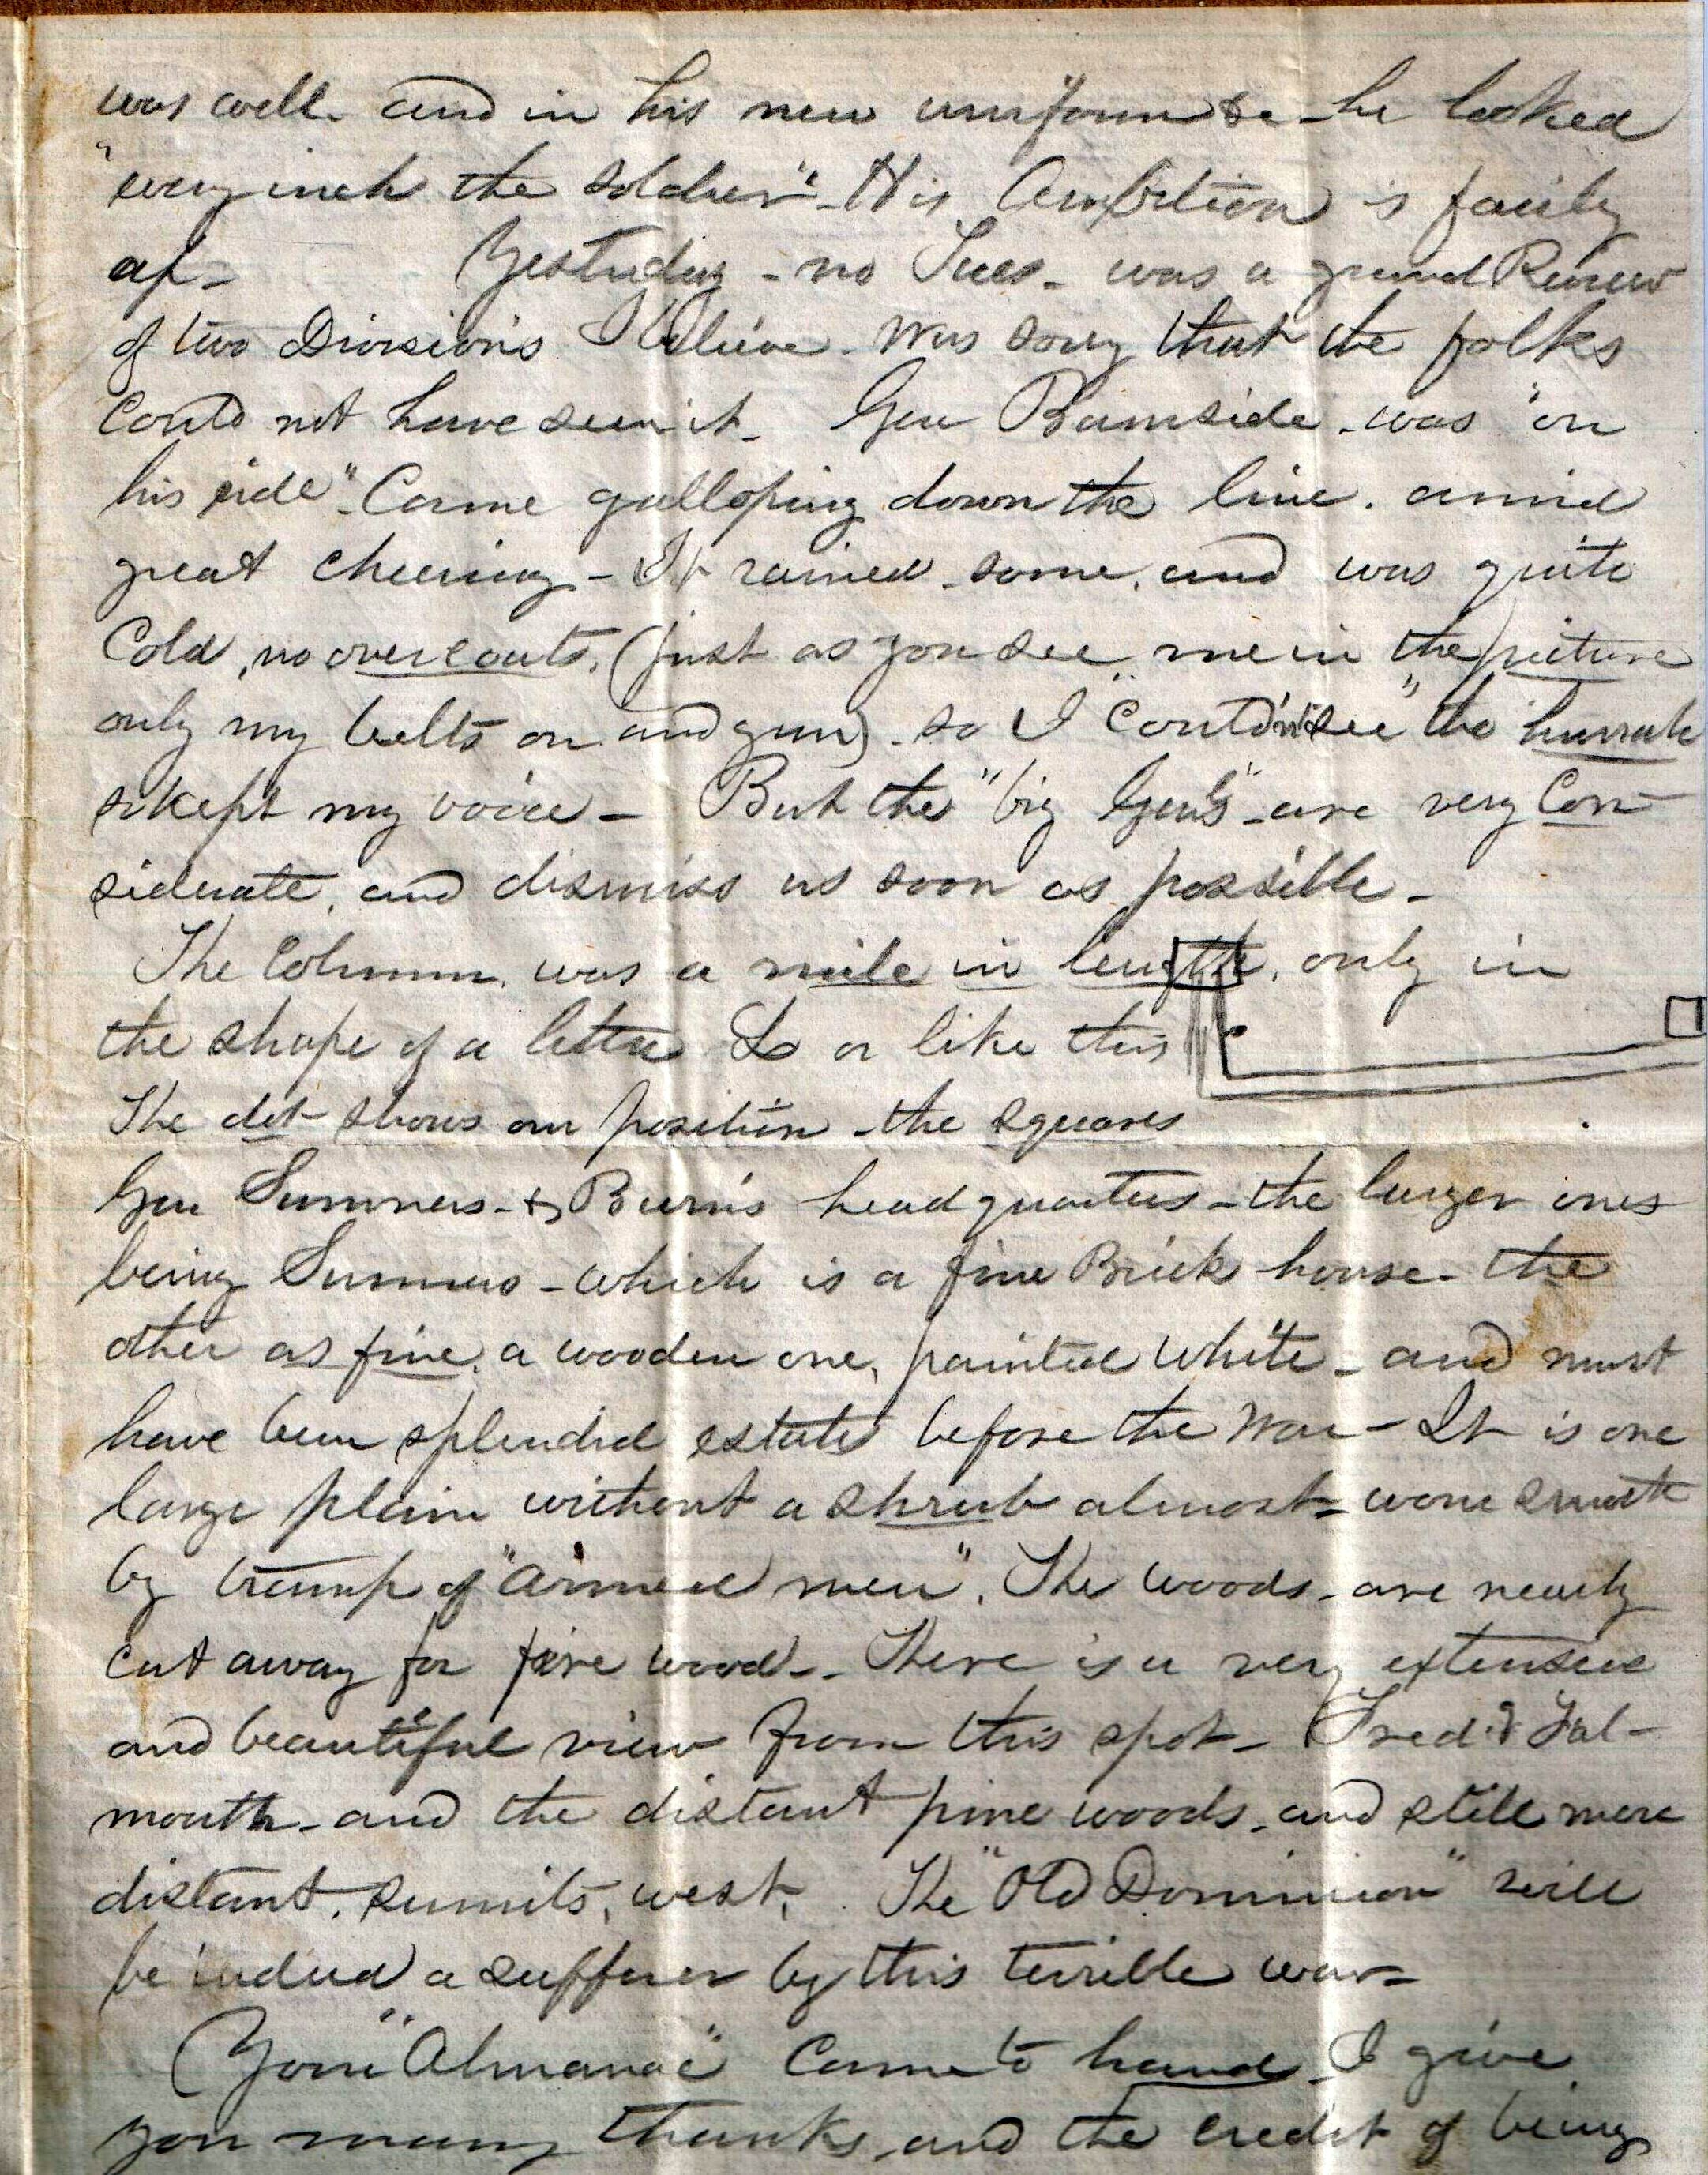 was well. and in his new uniform &c - he looked
"every inch the soldier". His Ambition is fairly
up - Yesterday - no Tues - was a grand Review
of two Divisions I believe - Was sorry that the folks
could not have seen it - Gen Burnside - was "on
his ride" - Came galloping down the line. amid
great cheering - It rained some, and was quite
Cold, no overcoats, (just as you see me in the picture
only my belts on and gun) - so I "couldn't see" the hurrah
so kept my voice - But the "big Gen's" - are very Con-
siderate, and dismiss us soon as possible -
The Column was a mile in length, only in
the shape of a letter L or like this
The dot shows our position - the squares
Gen Sumners - & Burn's head quarters - the larger ones
being Sumners - which is a fine Brick house - the
other as fine, a wooden one, painted white - and must
have been splendid estate before the War - It is one
large plain without a shrub almost - worn smooth
by tramp of "armed men". The woods - are nearly
cut away for fire wood - There is a very extensive
and beautiful view from this spot - Fred. & Fal-
mouth - and the distant pine woods, and still more
distant, sumits, west, The "Old Dominion" will
be indeed a sufferer by this terrible war -
(Your "Almanac" Came to hand I give
you many thanks, and the credit of being